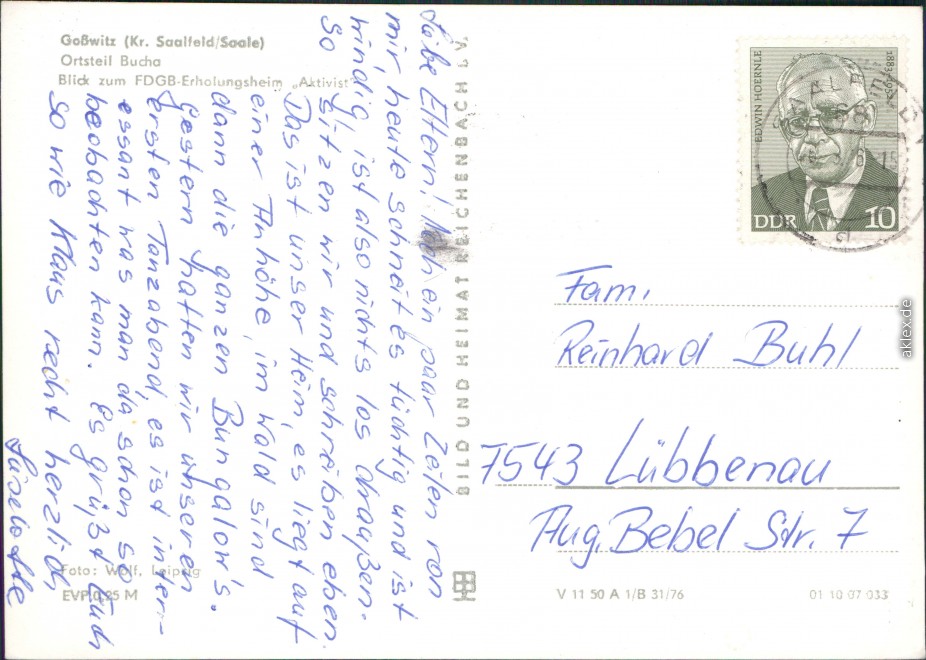 Goßwitz (Kr. Saalfeld/Saale)
Ortsteil Bucha
Blick zum FDGB-Erholungsheim „Aktivist"
Liebe Eltern! Noch ein paar Zeilen von
mir, heute schneit es tüchtig und ist
windig ist also nichts los draußen.
So sitzen wir und schreiben eben.
Das ist unser Heim, es liegt auf
einer Anhöhe, im Wald sind
dann die ganzen Bungalow's.
Gestern hatten wir unseren
ersten Tanzabend, es ist inter-
essant was man da schon so
beobachten kann. Es grüßt Euch
so wie Klaus recht herzlich
Liselotte
Foto: Wolf, Leipzig
EVP 0,25 M
BILD UND HEIMAT REICHENBACH I. V.
EDWIN HOERNLE
1883-1952
DDR 10
Fam.
Reinhard Buhl
7543 Lübbenau
Aug. Bebel Str. 7
V 11 50 A 1/B 31/76
01 10 07 033
aklex.de